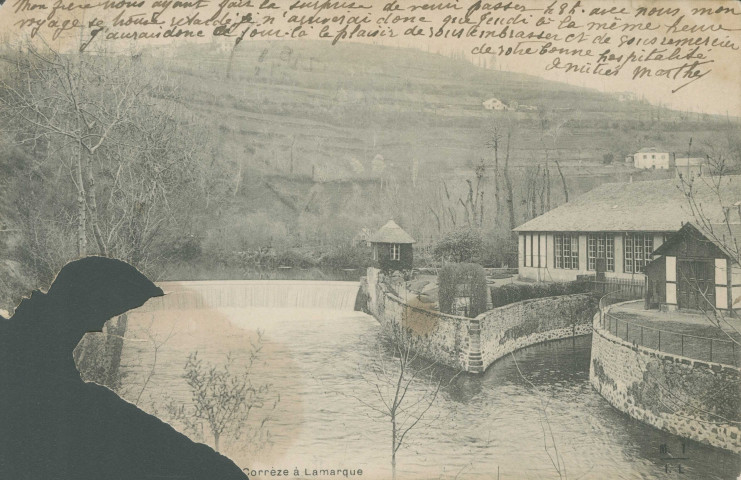 Mon frère nous ayant fait la surprise de venir passer 48h. avec nous mon
voyage se trouve retardé je n'arriverai donc que jeudi à la même heure
j'aurai donc ce jour-là le plaisir de vous embrasser et de vous remercier
de votre bonne hospitalité
Marthe
Corrèze à Lamarque